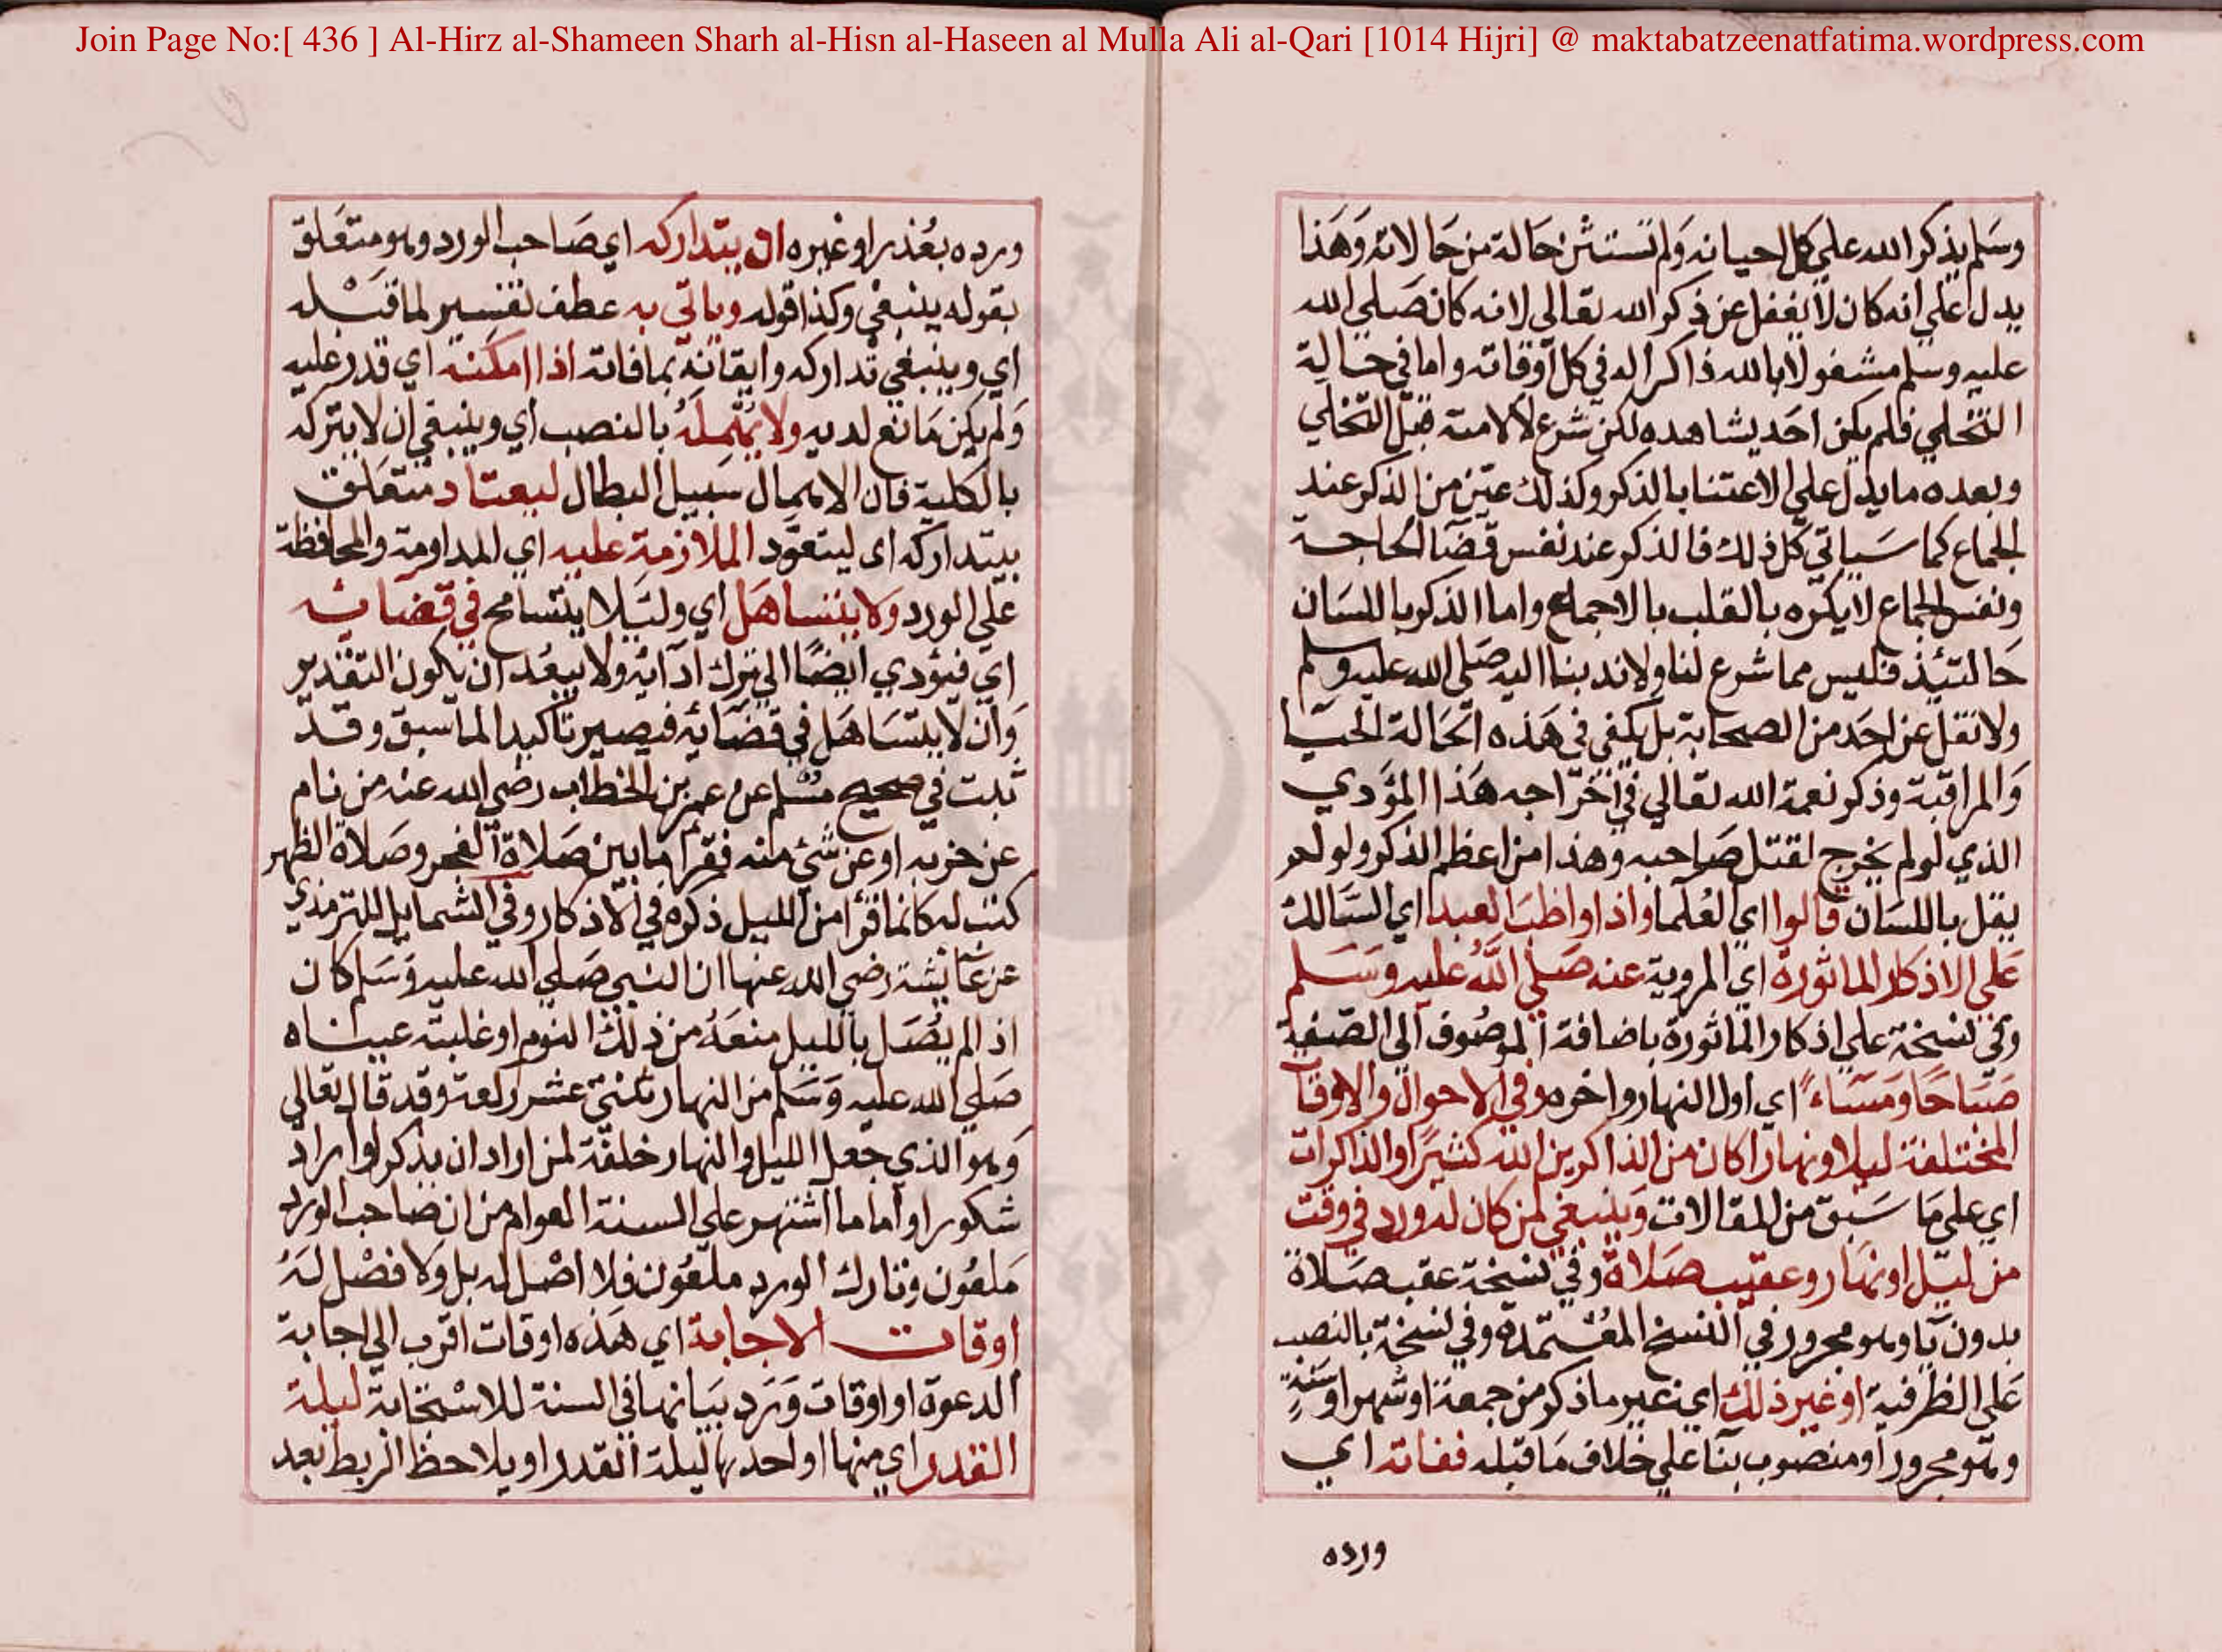 Join Page No:[ 436 ] Al-Hirz al-Shameen Sharh al-Hisn al-Haseen al Mulla Ali al-Qari [1014 Hijri] @ maktabatzeenatfatima.wordpress.com
وسَلم يذكر الله علي كل احيانه وَلم تستثن حَالة من حَالاته وَهَذا
يدل علي انه كان لا يغفل عن ذكر الله تعالى لانه كان صَلي الله
عليه وسلم مشغولا بالله ذاكرا له في كل اوقاته واما في حالة
التخلي فلم يكن احَد يشاهده لكن شرع لامته قبل التخلي
وبعده ما يدل علي الاعتنا بالذكر وكذلك عين من الذكر عند
الجماع كما سَياتي كل ذلك فالذكر عند نفس قضَا الحاجة
ونفس الجماع لا يكره بالقلب بالاجماع واما الذكر باللسَان
حَالتئذ فليس مما شرع لنا ولا ندبنا اليه صَلي الله عليه وسلم
ولا نقل عن احَد من الصحابة بل يكفي في هَذه الحَالة الحَيا
وَالمراقبة وذكر نعمة الله تعالي في اخراجه هَذا المؤدي
الذي لو لم يخرج لقتل صَاحبه وهذا من اعظم الذكر ولو لم
يقل باللسَان قالوا اي العُلما واذا واظبَ العبد اي السَّالك
عَلي الاذكار الماثورة اي المروية عنه صَلي اللَّه عليه وسَلم
وفي نسخة علي اذكار الماثورة باضافة الموصُوف الي الصفة
صَبَاحًا وَمَسَاءً اي اول النهار واخره وفي الاحوال والاوقات
المختلفة ليلا ونهارا كان من الذاكرين الله كثيرًا والذاكرات
اي علي مَا سَبق من المقالات وَينبغي لمن كان له ورد في وقت
من ليَل او نهَار وعقيب صَلاة وفي نسخة عقب صَلاة
بدون يَا وهو مجرور في النسخ المعُتمدة وفي نسخة بالنصب
عَلي الظرفية او غير ذلك اي غير ما ذكر من جمعة او شهر او سَنةٍ
وهو مجرور او منصوب بنَا علي خلاف مَا قبله ففاته اي
ورده
ورده بعُذر او غيره ان يتداركه اي صَاحب الورد وهو متعَلق
بقوله ينبغي وكذا قوله وياتي به عطف تفسير لما قبَله
اي وينبغي تداركه وايتانه بما فاته اذا امكنه اي قدر عليه
وَلم يكن مَانع لديه ولا يُهملَهُ بالنصب اي وينبغي ان لا يتركه
بالكلية فان الاهمال سَبيل البطال ليعتاد متعَلق
بيتداركه اى ليتعوّد الملازمة عليه اي المداومة والمحافظة
علي الورد وَلا يتساهَل اي ولئلا يتسامح في قضائه
اي فيؤدي ايضًا الي ترك ادآئه ولا يبعُد ان يكون التقدير
وَان لا يتسَاهَل في قضَائه فيصير تاكيدا لما سبق وقد
ثبت في صحيح مسُلم عن عمر بن الخطاب رضي الله عنه من نام
عن حزبه او عن شيء منه فقرا ما بين صَلاة الفجر وصَلاة الظهر
كتب له كانما قرا من الليل ذكره في الاذكار وفي الشمايل للترمذي
عن عَائشة رضي الله عنها ان النبي صَلي الله عليه وَسَلم كان
اذا لم يُصَل بالليل منعَهُ من ذلك النوم او غلبته عيناه
صَلي الله عليه وَسَلم من النهار ثنتي عشر ركعة وقد قال تعالي
وَهو الذي جعل الليل والنهار خلفة لمن اراد ان يذكر او اراد
شكورا واما ما اشتهر علي السنة العوام من ان صَاحب الورد
مَلعُون وتارك الورد ملعُون فلا اصْل له بل وَلا فضْل لَهُ
اوقات الاجابة اي هَذه اوقات اقرب الي اجابة
الدعوة او اوقات وَرَد بيَانها في السنة للاسْتجابة ليلة
القدر اي منها او احدها ليلة القدر او يلاحظ الربط بعد